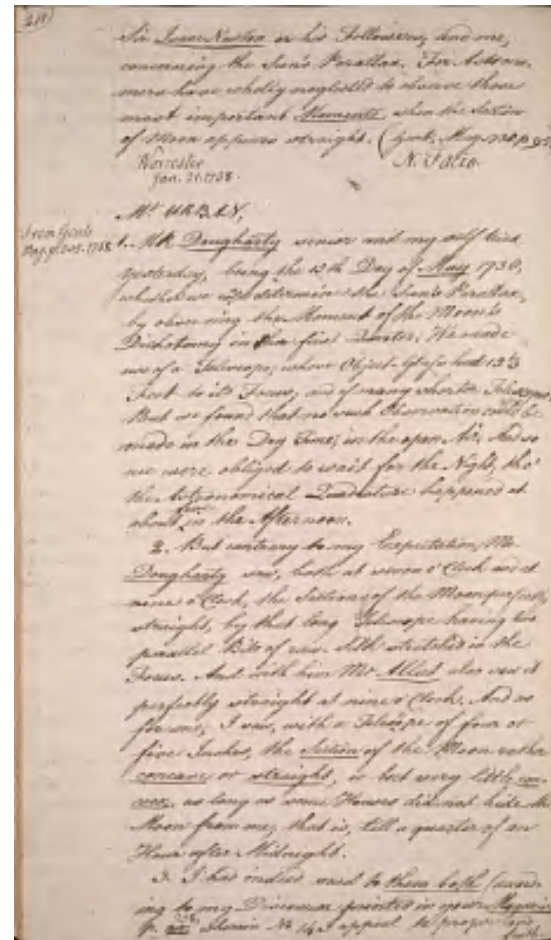 Sir Isaac Newton or his Followers, and me,
concerning the Sun's Parallax. For Astrono-
mers have wholly neglected to observe those
most important Moments, when the Section
of Moon appears straight. (Gent. Mag.
N. Facio.
Worcester
Jan. 31. 1738.
Mr URBAN,
From Gent.
Mag. 1738
1. Mr Dougharty senior and my self tried
yesterday, being the 15th Day of May 1738,
whether we determin the Sun's Parallax,
by observing the Moment of the Moon's
Dichotomy in the first Quarter. We made
use of a Telescope, whose Object-Glass had
Feet to its Focus, and of many shorter Telescopes.
But we found that no such Observation could be
made in the Day Time, in the open Air. And so
we were obliged to wait for the Night, tho'
the Astronomical Quadrature happened at
about in the Afternoon.
2. But contrary to my Expectation, Mr
Dougharty saw, both at seven o'Clock and at
nine o'Clock, the Section of the Moon perfectly
straight, by that long Telescope having two
parallel Bits of raw Silk stretched in the
Focus. And with him Mr also saw it
perfectly straight at nine o'Clock. And as
for me, I saw, with a Telescope of four or
five Inches, the Section of the Moon rather
concave or straight, or but very little con-
vex, as long as some Houses did not hide the
Moon from me; that is, till a quarter of an
Hour after Midnight.
3. I had indeed said to them both (accord-
ing to my Discourse printed in your Magazine
appeal to proper and